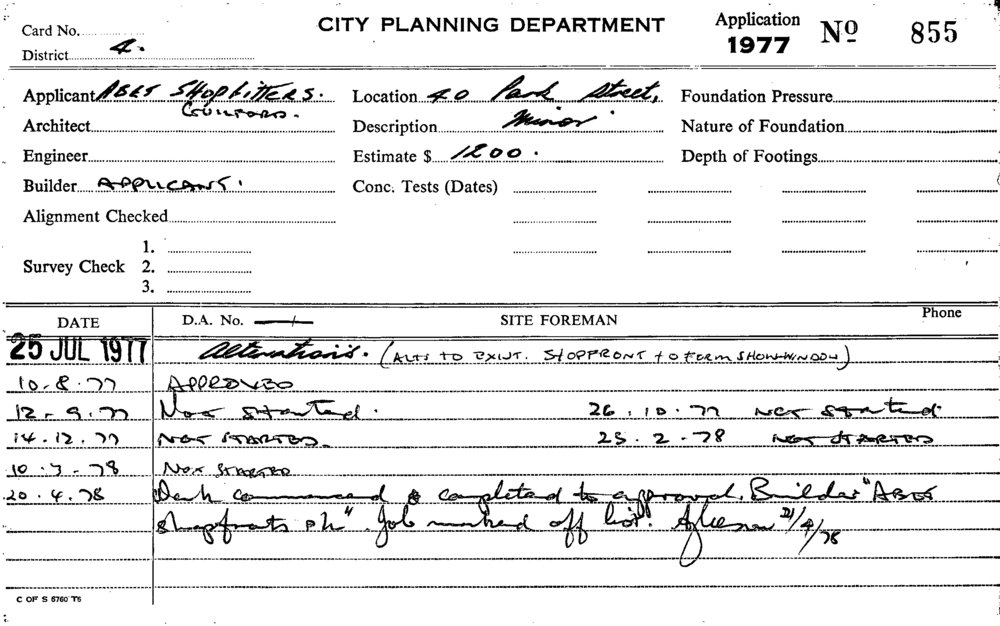 CITY PLANNING DEPARTMENT
Application 1977 Nº 855
Card No.
District 4.
Applicant ABLE SHOPFITTERS.
GUILFORD.
Location 40 Park Street,
Foundation Pressure
Architect
Description Minor
Nature of Foundation
Engineer
Estimate $ 1200.
Depth of Footings
Builder APPLICANT.
Conc. Tests (Dates)
Alignment Checked
Survey Check 1.
2.
3.
DATE D.A. No. SITE FOREMAN Phone
25 JUL 1977 Alterations. (ALTS TO EXIST. SHOPFRONT TO FORM SHOW WINDOW)
10-8-77 APPROVED
12-9-77 Not Started. 26.10.77 Not Started
14.12.77 NOT STARTED. 23.2.78 NOT STARTED
10.3.78 NOT STARTED
20.4.78 Work commenced & completed to approval. Builder "ABLE
Shopfronts P/L". Job marked off list. 21/4/78
C OF S 6760 T6